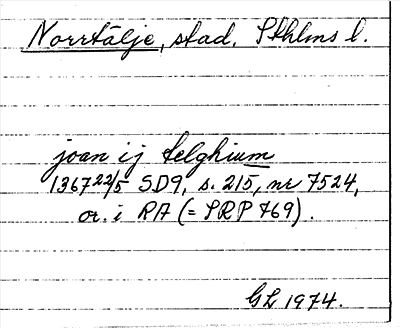 Norrtälje, stad. Sthlms l.
joan ij telghium
1367 22/5 SD9, s. 215, nr 7524,
or. i RA (= SRP 769).
GL 1974.